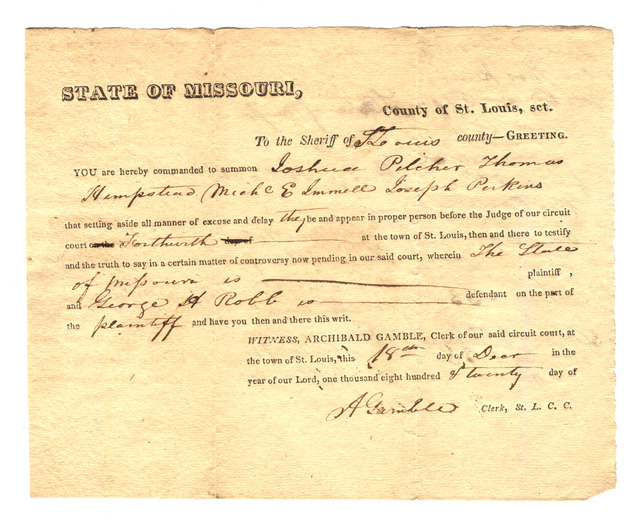 STATE OF MISSOURI,
County of St. Louis, sct.
To the Sheriff of St Louis county—GREETING.
YOU are hereby commanded to summon Joshua Pilcher Thomas
Hempstead Michl E Immell Joseph Perkins
that setting aside all manner of excuse and delay they be and appear in proper person before the Judge of our circuit
court on the Forthwith day of at the town of St. Louis, then and there to testify
and the truth to say in a certain matter of controversy now pending in our said court, wherein The State
of Missouri is plaintiff,
and George H Robb is defendant on the part of
the plaintiff and have you then and there this writ.
WITNESS, ARCHIBALD GAMBLE, Clerk of our said circuit court, at
the town of St. Louis, this 18th day of Decr in the
year of our Lord, one thousand eight hundred & twenty day of
A Gamble Clerk, St. L. C. C.